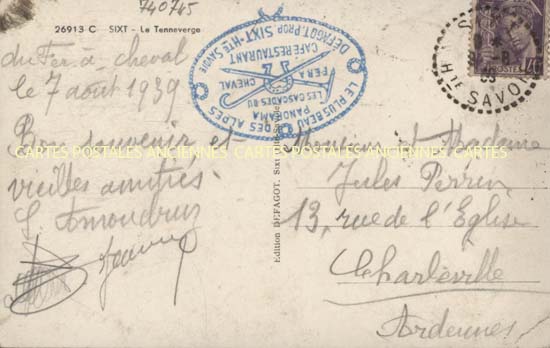 740745
26913 C SIXT - Le Tenneverge
du Fer-à-cheval
le 7 août 1939
Bon souvenir et
vieilles amitiés
LE PLUS BEAU PANORAMA DES ALPES
LES CASCADES DU
FER A CHEVAL
CAFE RESTAURANT
DEFAGOT. PROP SIXT. HTE SAVOIE
POSTES
HTE SAVOIE
CARTES POSTALES ANCIENNES CARTES POSTALES ANCIENNES CARTES
Edition DEFAGOT, Sixt
Monsieur et Madame
Jules Perrin
13, rue de l'Eglise
Charleville
Ardennes